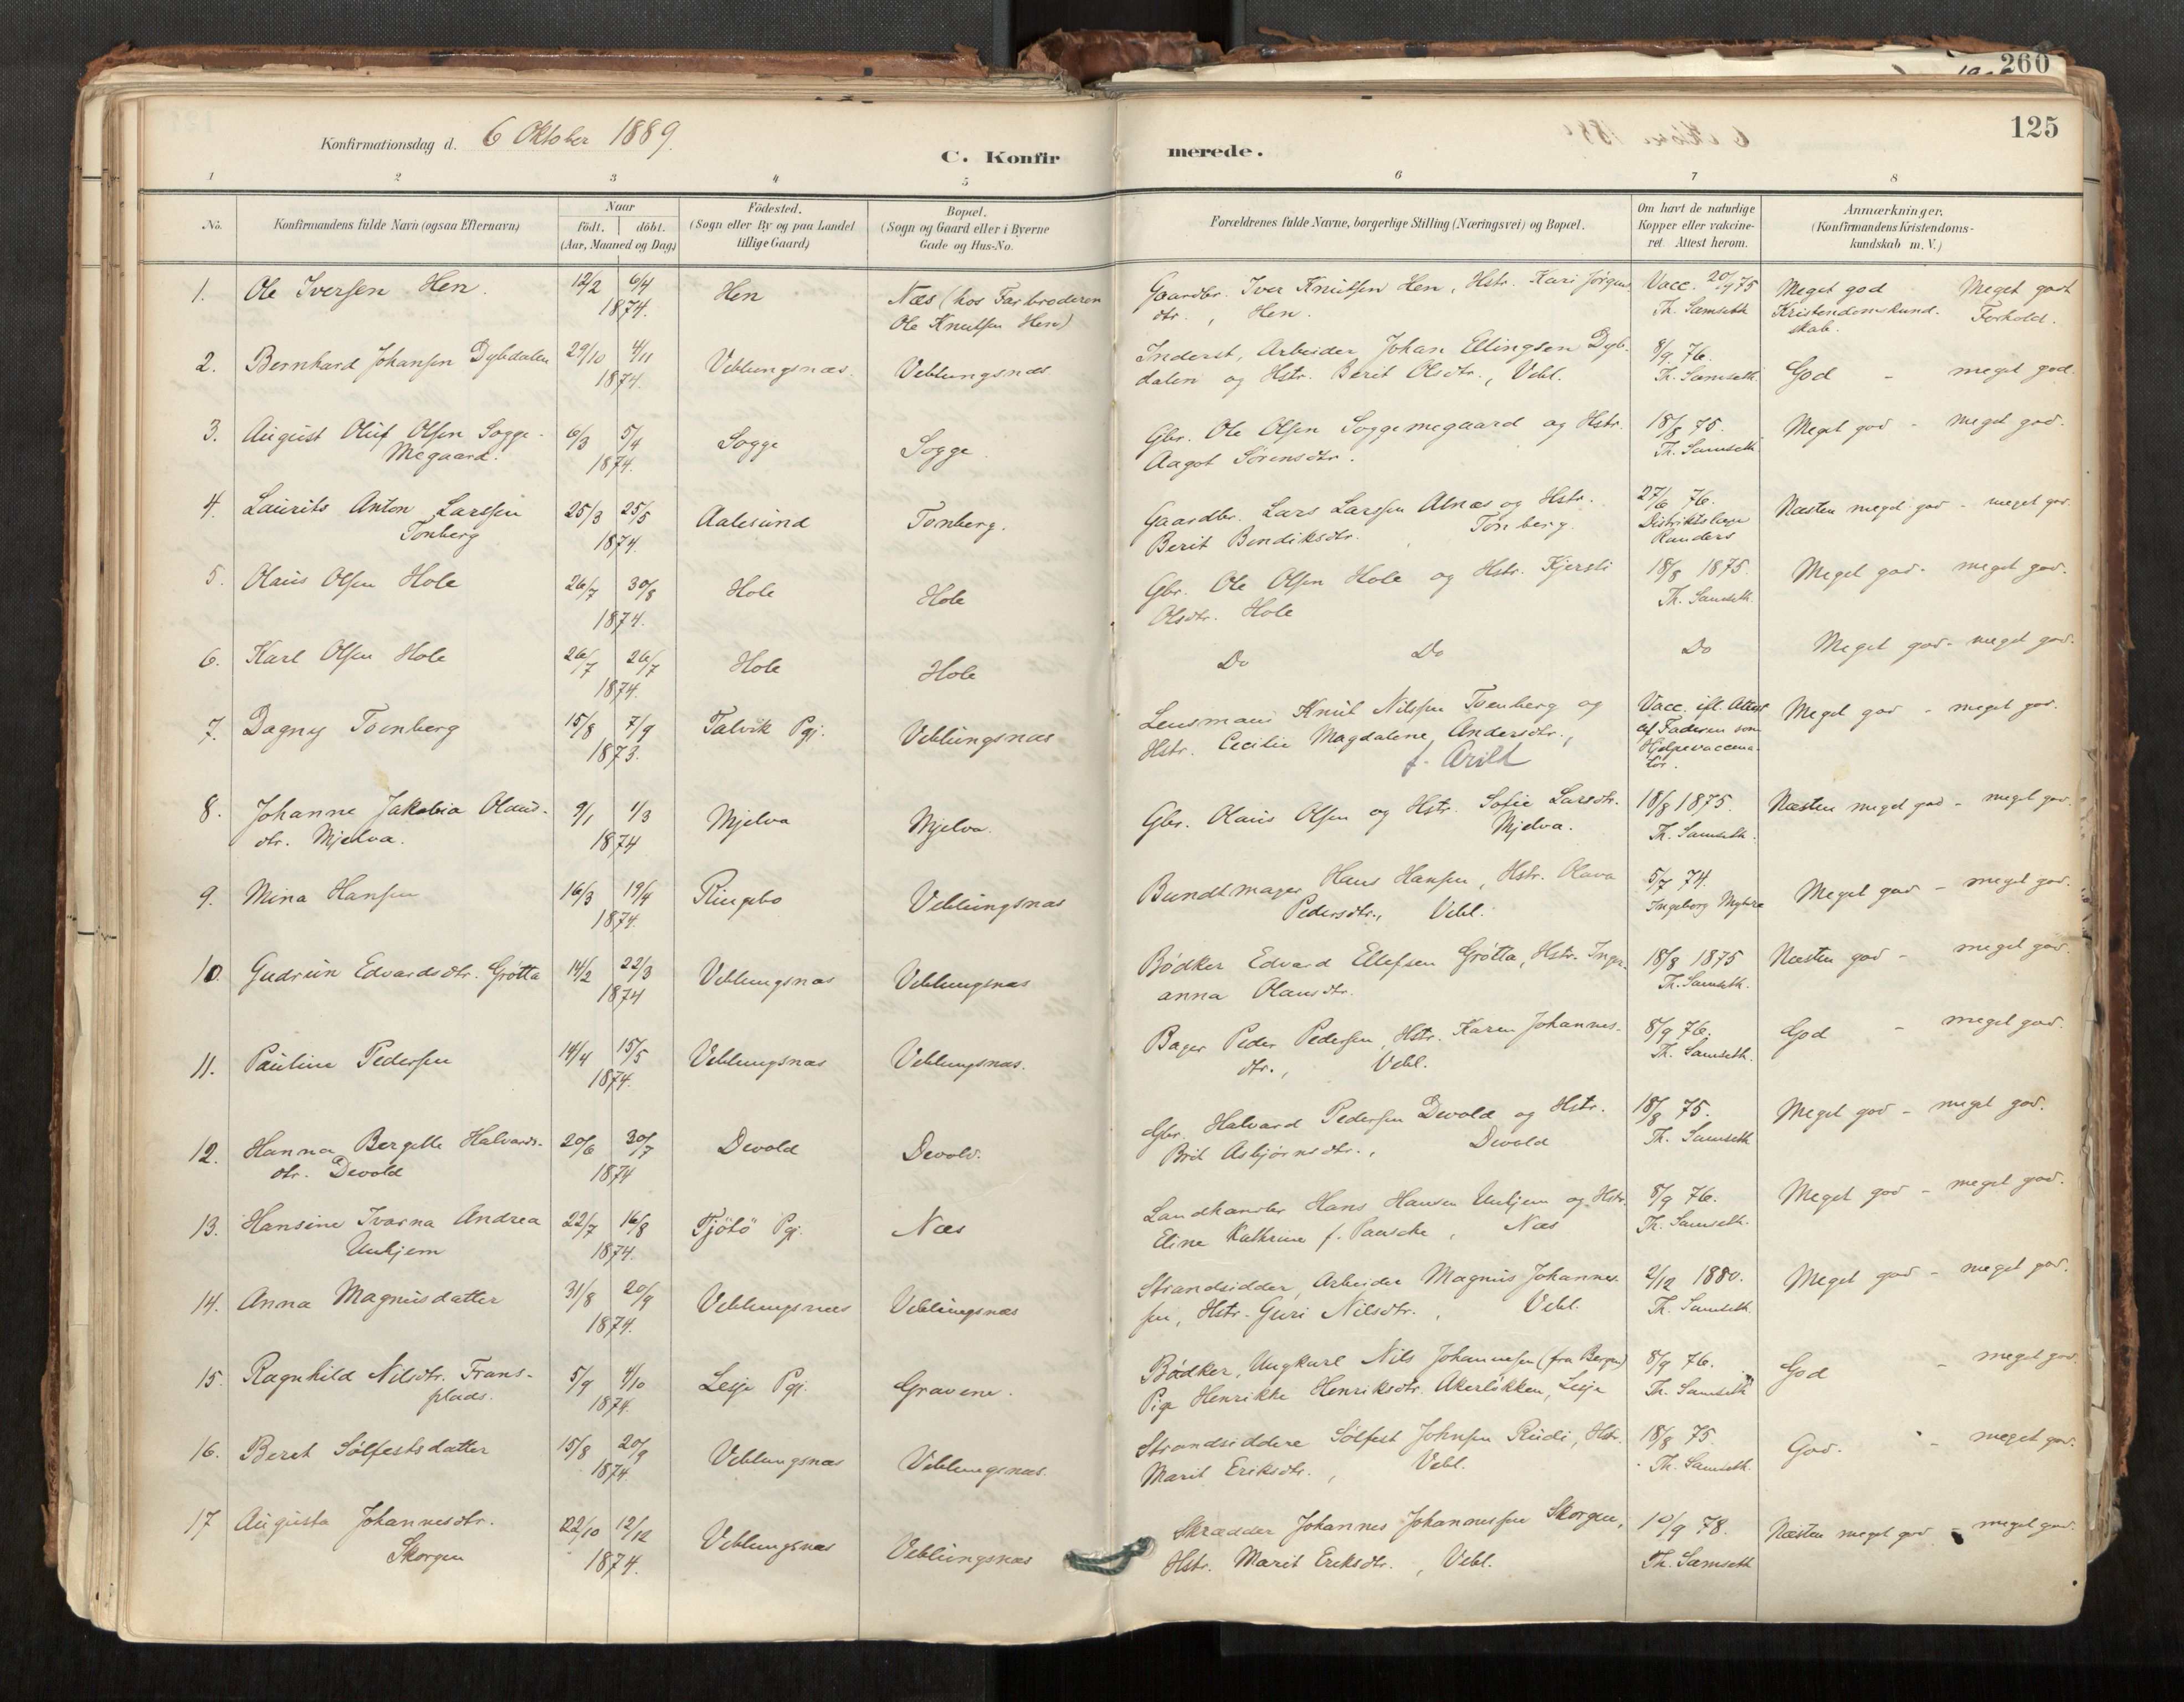 260
125
Konfirmationsdag d. 6 Oktober 1889.
C. Konfir
merede.
1 2 3 4 5 6 7 8
No.
Konfirmandens fulde Navn (ogsaa Efternavn)
Naar
födt. döbt.
(Aar, Maaned og Dag)
Födested.
(Sogn eller By og paa Landet
tillige Gaard)
Bopæl.
(Sogn og Gaard eller i Byerne
Gade og Hus-No.
Forældrenes fulde Navne, borgerlige Stilling (Næringsvei) og Bopæl.
Om havt de naturlige
Kopper eller vakcine-
ret. Attest herom.
Anmærkninger.
(Konfirmandens Kristendoms-
kundskab m. V.)
1. Ole Iversen Hen. 12/2 6/4 Hen Næs (hos Farbroderen Gaardbr. Iver Knutsen Hen, Hstr. Kari Jørgens Vacc. 20/9 75 Meget god Meget godt
1874. Ole Knutsen Hen) dtr., Hen. Th. Samseth Kristendomskund. Forhold.
skab.
2. Bernhard Johansen Dybdalen 29/10 4/11 Veblungsnæs. Veblungsnæs Inderst, Arbeider Johan Ellingsen Dyb- 8/9 76. God - meget god.
1874. dalen og Hstr. Berit Olsdtr., Vebl. Th. Samseth.
3. August Oluf Olsen Sogge- 6/3 5/4 Sogge Sogge. Gbr. Ole Olsen Soggemegaard og Hstr. 18/8 75. Meget god - meget god.
Megaard. 1874. Aagot Sørensdtr. Th. Samseth
4. Laurits Anton Larssen 25/3 25/5 Aalesund Tonberg. Gaardbr. Lars Larssen Alnæs og Hstr. 27/6 76. Næsten meget god - meget god.
Tonberg 1874. Berit Bendiksdtr. Tonberg. Distriktslæge
Randers
5. Olaus Olsen Hole 26/7 30/8 Hole Hole Gbr. Ole Olsen Hole og Hstr. Kjersti 18/8 1875. Meget god - meget god.
1874. Olsdtr. Hole Th. Samseth.
6. Karl Olsen Hole 26/7 26/7 Hole Hole Do Do Do Meget god - meget god.
1874.
7. Dagny Toenberg 15/8 7/9 Talvik Pgj. Veblungsnæs Lensmann Knut Nilssen Toenberg og Vacc. ifl. Attest Meget god - meget god.
1873. Hstr. Cecilie Magdalene Andersdtr., af Faderen som
f. Arild Hjelpevaccina-
tør.
8. Johanne Jakobia Olaus- 9/1 1/3 Mjelva Mjelva. Gbr. Olaus Olsen og Hstr. Sofie Larsdtr. 18/8 1875. Næsten meget god - meget god.
dtr. Mjelva. 1874 Mjelva. Th. Samseth.
9. Mina Hansen 16/3 19/4 Ringebo Veblungsnæs Bundtmager Hans Hansen, Hstr. Olava 5/7 74. Meget god - meget god.
1874. Pedersdtr., Vebl. Ingeborg
10. Gudrun Edvardsdtr. Grøtta 14/2 22/3 Veblungsnæs Veblungsnæs Bødker Edvard Ellefsen Grøtta, Hstr. Inger- 18/8 1875 Næsten god - meget god.
1874 anna Olausdtr. Th. Samseth.
11. Pauline Pedersen 14/4 15/5 Veblungsnæs Veblungsnæs. Bager Peder Pedersen, Hstr. Karen Johannes- 8/9 76. God - meget god.
1874. dtr., Vebl. Th. Samseth.
12. Hanna Bergitte Halvards- 20/6 30/7 Devold Devold. Gbr. Halvard Pedersen Devold og Hstr. 18/8 75. Meget god - meget god.
dtr. Devold 1874 Brit Asbjørnsdtr., Devold Th. Samseth
13. Hansine Ivarna Andrea 22/7 16/8 Tjötö Pgj. Næs Landhandler Hans Hansen Unhjem og Hstr. 8/9 76. Meget god - meget god.
Unhjem 1874. Eline Kathrine f. Paasche, Næs Th. Samseth.
14. Anna Magnusdatter 31/8 20/9 Veblungsnæs Veblungsnæs Strandsidder, Arbeider Magnus Johannes- 2/12 1880. Meget god - meget god.
1874. sen, Hstr. Guri Nilsdtr., Vebl. Th. Samseth
15. Ragnhild Nilsdtr. Frans- 5/9 4/10 Lesje Pgj. Gravene. Bødker, Ungkarl Nils Johannesen (fra Bergen) 8/9 76. God - meget god.
plads. 1874. Pige Henrikke Henriksdtr. Akerløkken, Lesje Th. Samseth
16. Beret Sølfestsdatter 15/8 20/9 Veblungsnæs Veblungsnæs. Strandsiddere Sølfest Johnsen Rudi, Hstr. 18/8 75 God. - meget god.
1874. Marit Eriksdtr., Vebl. Th. Samseth.
17 Augusta Johannesdtr. 22/10 12/12 Veblungsnæs Veblungsnæs Skrædder Johannes Johannessen Skorgen, 10/9 78. Næsten meget god - meget god.
Skorgen 1874. Hstr. Marit Eriksdtr., Vebl. Th. Samseth